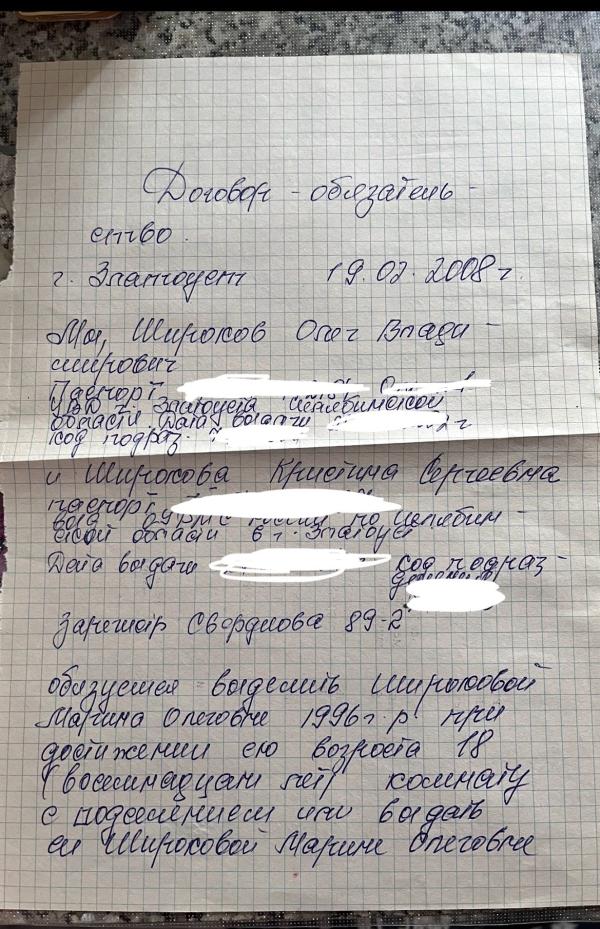 Договор - обязатель -
ство.
г. Златоуст 19.02.2008 г.
Мы, Широков Олег Влади -
мирович
Паспорт
УВД г. Златоуста Челябинской
области. Дата выдачи
код подраз.
и Широкова Кристина Сергеевна
паспорт
по Челябин -
ской области в г. Златоуст
Дата выдачи код подраз -
Зарегистр Свердлова 89-2
обязуемся выделить Широковой
Марине Олеговне 1996 г. р при
достижении ею возроста 18
(восемнадцати лет) комнату
с подселением или выдать
ей Широковой Марине Олеговне